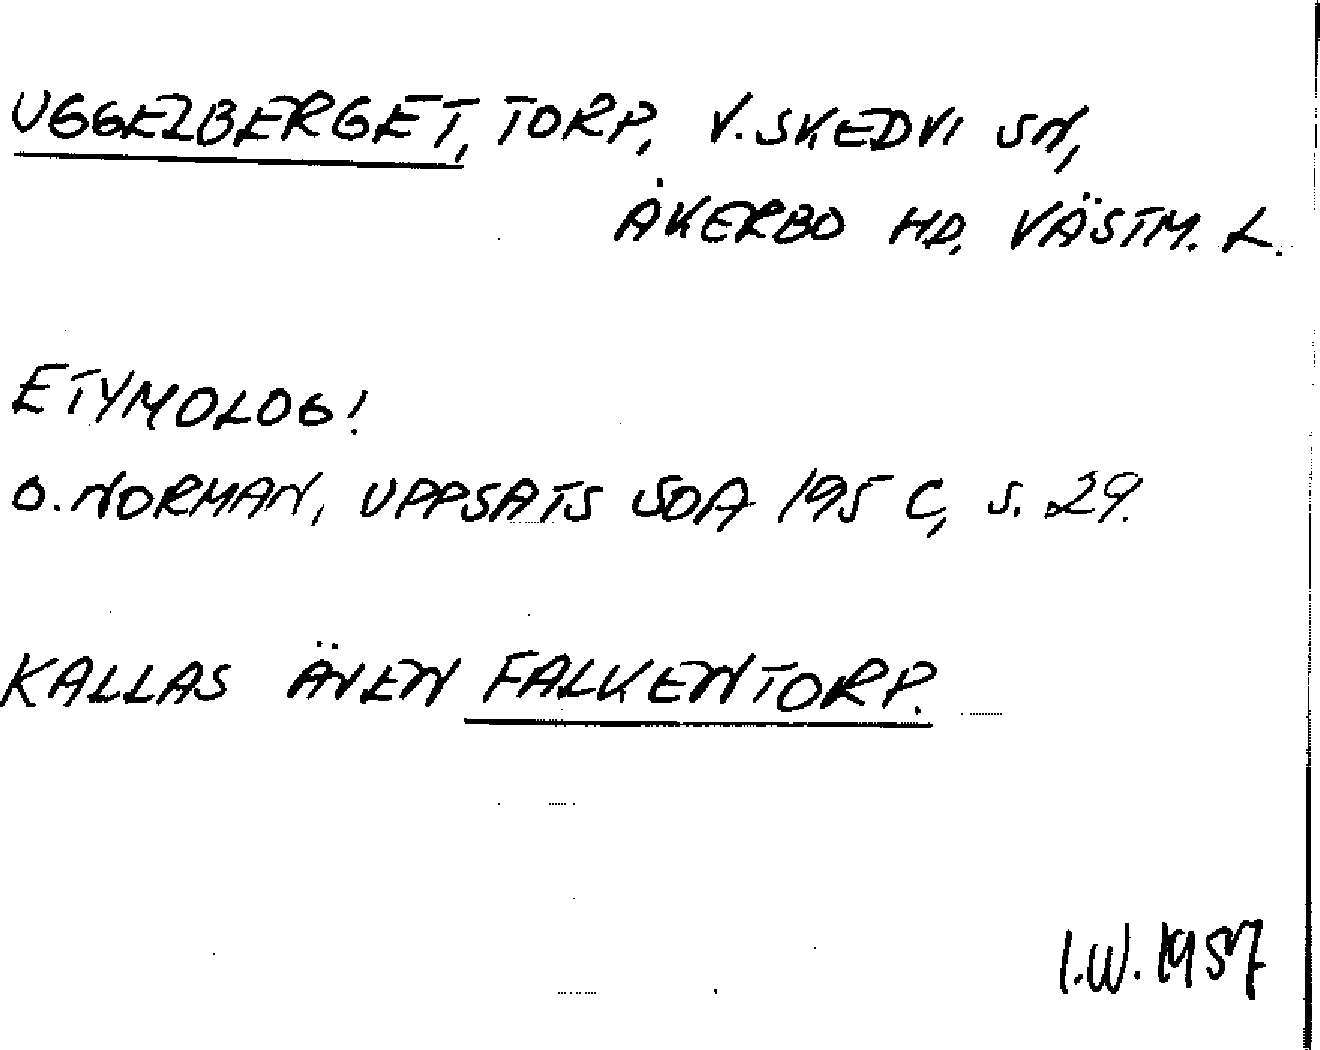 UGGELBERGET, TORP, V. SKEDVI SN,
ÅKERBO HD, VÄSTM. L.
ETYMOLOG!
O. NORMAN, UPPSATS SOA 195 C, S. 29.
KALLAS ÄVEN FALKENTORP.
I.W. 1957